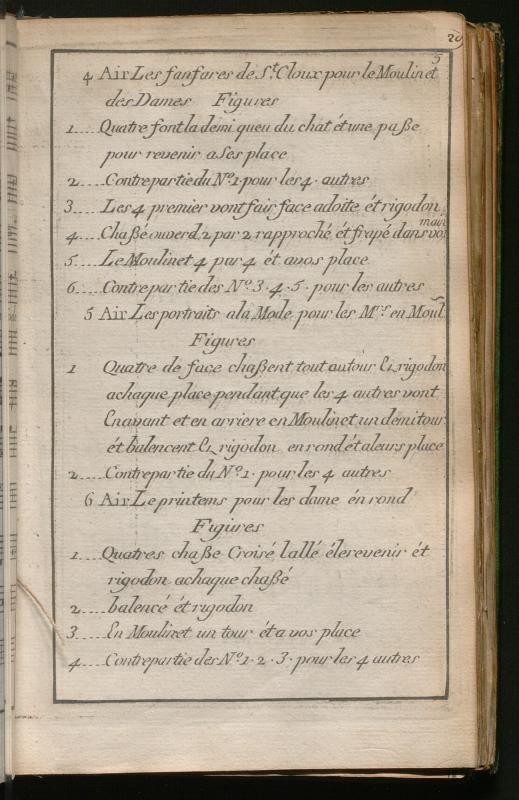 20
5
4 Air Les fanfares de S.t Cloux pour le Moulinet
des Dames Figures
1.... Quatre font la demi queu du chat ét une paße
pour revenir a ses place
2.... Contrepartie du N.o 1. pour les 4. autres
3.... Les 4 premier vont fair face adoite ét rigodon
4.... Chaßé ouverd 2 par 2 rapproché ét frapé dans vos main
5.... Le Moulinet 4 par 4 ét avos place
6.... Contrepartie des N.o 3. 4. 5. pour les autres
5 Air Les portraits ala Mode pour les M.rs en Moul.
Figures
1 Quatre de face chaßent tout autour Et rigodon
achaque place pendant que les 4 autres vont
Enavant et en arriere en Moulinet un demi tour
ét balencent Et rigodon en rond ét aleurs place
2.... Contrepartie du N.o 1. pour les 4 autres
6 Air Le printems pour les dame én rond
Figures
1.... Quatres chaße Croisé lallé élerevenir ét
rigodon achaque chaßé
2.... balencé ét rigodon
3.... En Moulinet un tour ét a vos place
4.... Contrepartie des N.o 1. 2. 3. pour les 4 autres